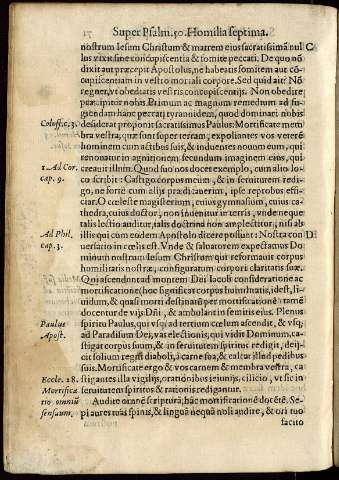 Super Psalm. 50. Homilia septima.
nostrum Iesum Christum & matrem eius sacratissimã nul
lus vixit sine concupiscentia & fomite peccati. De quo nõ
dixit aut præcepit Apostolus, ne habeatis fomitem aut cõ
cupiscentiam in vestro moriali corpore. Sed quid ait? Nõ
regnet, vt obediatis vestris concupiscentijs. Non obedire
præcipitur nobis. Primum ac magnum remedium ad fu
giendam hanc peccati tyrannidem, quod dominari nobis
Coloss. c. 3. desiderat proponit sacratissimus Paulus. Mortificate mem
bra vestra, quæ sunt super terram; expoliantes vos veterẽ
hominem cum actibus suis, & induentes nouum eum, qui
renouatur in agnitionem secundum imaginem eius, qui
1. Ad Cor. creauit illum. Quod suo nos docet exemplo, cum alio lo
cap. 9. co scribit: Castigo corpus meum, & in seruitutem redi-
go, ne fortè cum alijs prædicauerim, ipse reprobus effi-
ciar. O cœleste magisterium, cuius gymnasium, cuius ca-
thedra, cuius doctor, non inuenitur in terris, vnde neque
talis lectio auditur, talis doctrina non amplectitur, nisi ab
Ad Phil. illis qui cum eodem Apostolo dicere possunt: Nostra con
cap. 3. uersatio in cœlis est. Vnde & saluatorem expectamus Do
minum nostrum Iesum Christum qui reformauit corpus
humilitatis nostræ, configuratum corpori claritatis suæ.
Qui ascendunt ad montem Dñi Iacob consideratione ac
mortificationi, hoc significat corpus humiliatis, idest, li-
uidum, & quasi morti destinatũ per mortificationẽ tamẽ
docentur de vijs Dñi, & ambulant in semitis eius. Plenus
Paulus spiritu Paulus, qui vsq; ad tertium cœlum ascendit, & vsq;
Apost. ad Paradisum Dei, vas electionis, qui vidit Dominum, ca-
stigat corpus suum, & in seruitutem spiritus redigit, deij-
cit solium regis diaboli, à carne sua, & calcat illud pedibus
suis. Mortificate ergo & vos carnem & membra vestra, ca
Eccle. 28. stigantes illa vigilijs, orationibus ieiunijs, cilicio, vt sic in
Mortifica seruitutem spiritus & rationis redigantur.
tio omniũ Audite omnẽ scripturã, hãc mortificationẽ docẽtẽ. Se-
sensuum. pi aures tuas spinis, & linguã nequã noli audire, & ori tuo
facito